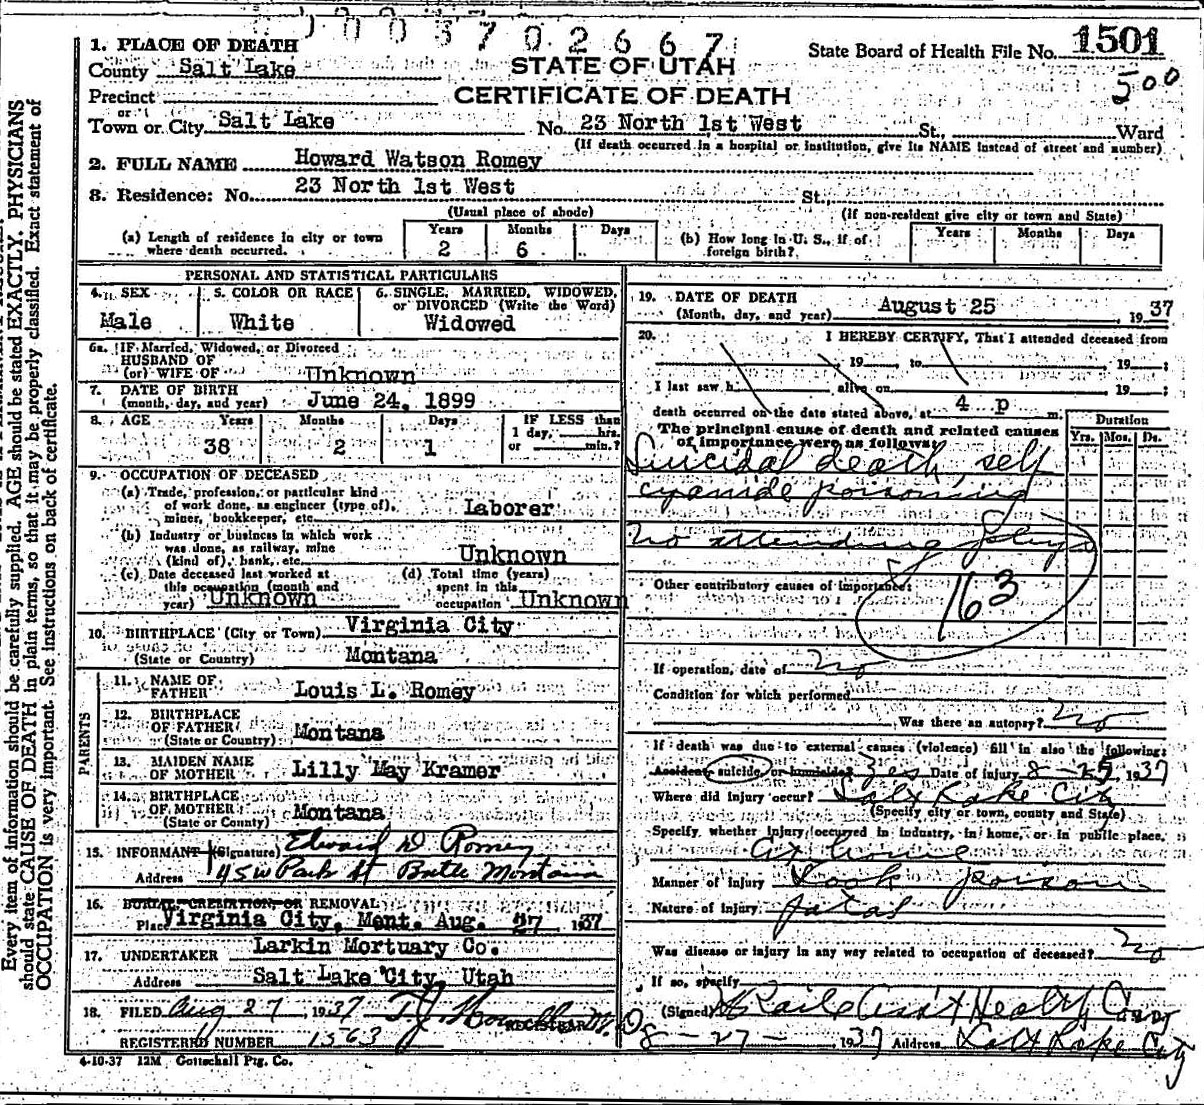 003702667
1501
State Board of Health File No.
500
1. PLACE OF DEATH
STATE OF UTAH
County Salt Lake
CERTIFICATE OF DEATH
Precinct
or
Town or City Salt Lake No. 23 North 1st West St., Ward
(If death occurred in a hospital or institution, give its NAME instead of street and number)
2. FULL NAME Howard Watson Romey
3. Residence: No. 23 North 1st West St.
(Usual place of abode) (If non-resident give city or town and State)
(a) Length of residence in city or town where death occurred. Years 2 Months 6 Days
(b) How long in U. S., if of foreign birth? Years Months Days
PERSONAL AND STATISTICAL PARTICULARS
4. SEX Male
5. COLOR OR RACE White
6. SINGLE, MARRIED, WIDOWED, or DIVORCED (Write the Word) Widowed
6a. If Married, Widowed, or Divorced
HUSBAND OF
(or) WIFE OF Unknown
7. DATE OF BIRTH
(month, day, and year) June 24, 1899
8. AGE Years 38 Months 2 Days 1 IF LESS than 1 day, hrs. or min.?
9. OCCUPATION OF DECEASED
(a) Trade, profession, or particular kind
of work done, as engineer (type of),
miner, bookkeeper, etc. Laborer
(b) Industry or business in which work
was done, as railway, mine
(kind of), bank, etc. Unknown
(c) Date deceased last worked at
this occupation (month and
year) Unknown
(d) Total time (years)
spent in this
occupation Unknown
10. BIRTHPLACE (City or Town) Virginia City
(State or Country) Montana
PARENTS
11. NAME OF FATHER Louis L. Romey
12. BIRTHPLACE OF FATHER (State or Country) Montana
13. MAIDEN NAME OF MOTHER Lilly May Kramer
14. BIRTHPLACE OF MOTHER (State or County) Montana
15. INFORMANT (Signature) Edward D Romey
Address 45 W Park St Butte Montana
16. BURIAL, CREMATION, OR REMOVAL
Place Virginia City, Mont. Aug. 27 1937
17. UNDERTAKER Larkin Mortuary Co.
Address Salt Lake City, Utah
18. FILED Aug 27, 1937
REGISTRAR
REGISTERED NUMBER 1563
4-10-37 12M Gottschall Ptg. Co.
19. DATE OF DEATH
(Month, day, and year) August 25, 1937
20. I HEREBY CERTIFY, That I attended deceased from
, 19 , to , 19 ;
I last saw h alive on , 19 ;
death occurred on the date stated above, at 4 p m.
The principal cause of death and related causes
of importance were as follows:
Duration
Yrs. Mos. Ds.
Suicidal death, self
cyanide poisoning
No attending Phys
Other contributory causes of importance:
163
If operation, date of no
Condition for which performed
Was there an autopsy? no
If death was due to external causes (violence) fill in also the following:
Accident, suicide, or homicide? Yes Date of injury 8-25, 1937
Where did injury occur? Salt Lake City
(Specify city or town, county and State)
Specify whether injury occurred in industry, in home, or in public place.
At home
Manner of injury Took poison
Nature of injury fatal
Was disease or injury in any way related to occupation of deceased? no
If so, specify
(Signed)
8-27-1937 Address Salt Lake City
Every item of information should be carefully supplied. AGE should be stated EXACTLY. PHYSICIANS
should state CAUSE OF DEATH in plain terms, so that it may be properly classified. Exact statement of
OCCUPATION is very important. See instructions on back of certificate.